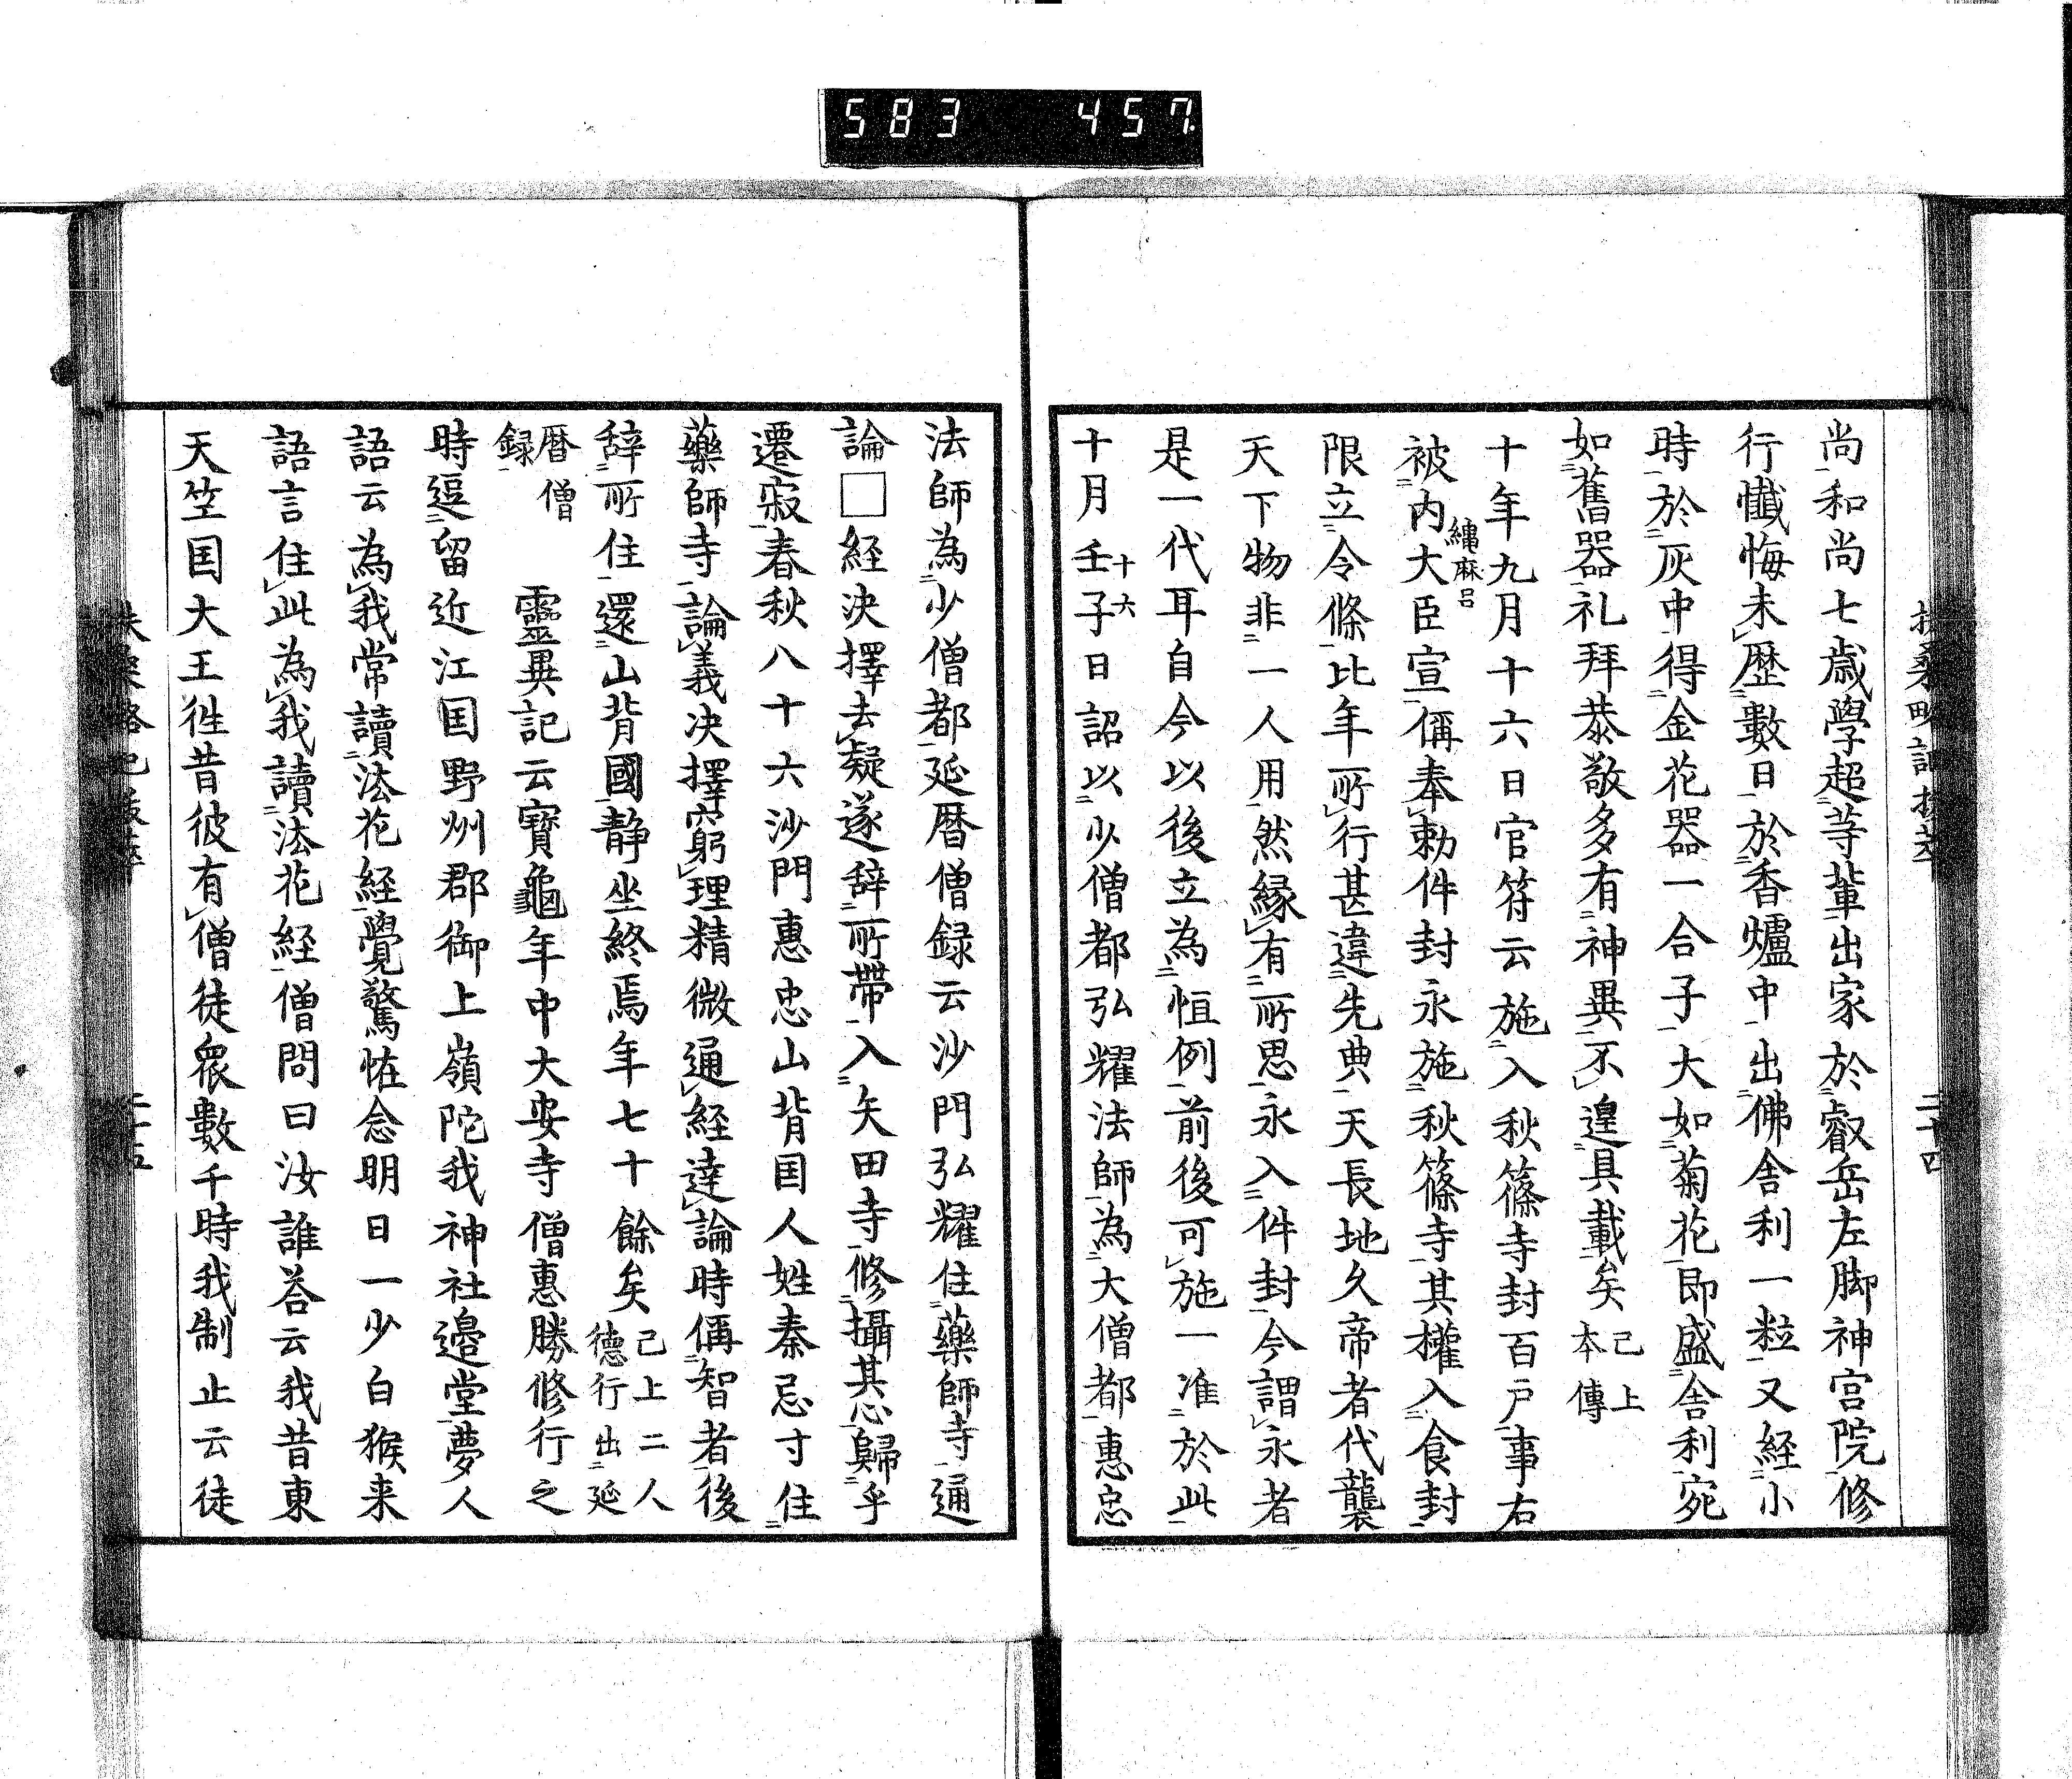 583 457
尚和尚七歳學超等輩出家於叡岳左脚神宮院修
行懺悔未歴數日於香爐中出佛舎利一粒又経小
時於灰中得金花器一合子大如菊花即盛舎利宛
如舊器礼拜恭敬多有神異不遑具載矣已上本傳
十年九月十六日官符云施入秋篠寺封百戸事右
被内大臣縄麻呂宣偁奉勅件封永施秋篠寺其權入食封
限立令條比年所行甚違先典天長地久帝者代襲
天下物非一人用然縁有所思永入件封今謂永者
是一代耳自今以後立為恒例前後可施一准於此
十月壬子十六日詔以少僧都弘耀法師為大僧都惠忠
法師為少僧都延暦僧録云沙門弘耀住藥師寺通
論□経決擇去疑遂辞所帶入矢田寺修攝其心歸乎
遷寂春秋八十六沙門惠忠山背国人姓秦忌寸住
藥師寺論義决擇窮理精微通経達論時偁智者後
辞所住還山背國静坐終焉年七十餘矣已上二人德行出延
暦僧録 靈異記云寶龜年中大安寺僧惠勝修行之
時逗留近江国野州郡御上嶺陀我神社邉堂夢人
語云為我常讀法花経覺驚恠念明日一少白猴来
語言住此為我讀法花経僧問曰汝誰荅云我昔東
天竺国大王徃昔彼有僧徒衆數千時我制止云徒